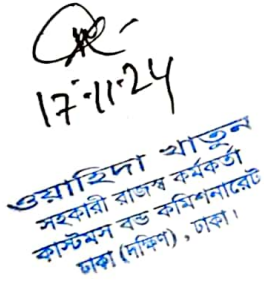 17.11.24
ওয়াহিদা খাতুন
সহকারী রাজস্ব কর্মকর্তা
কাস্টমস বন্ড কমিশনারেট
ঢাকা (দক্ষিণ), ঢাকা।